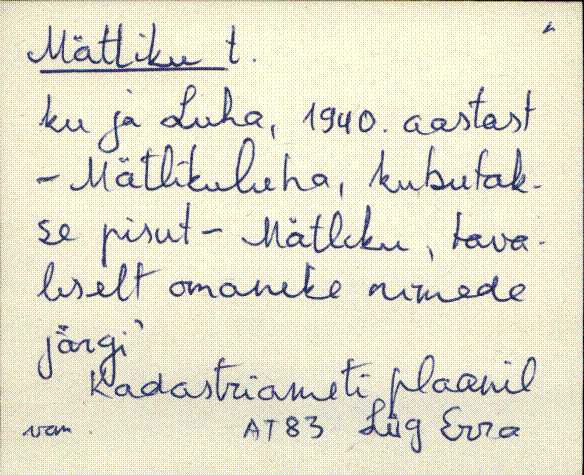 Mätliku t.
ku ja Luha, 1940. aastast
- Mätlikuluha, kutsutak-
se pisut - Mätliku, tava-
liselt omanike nimede
järgi
Kadastriameti plaanil
van AT 83 Liig Erra